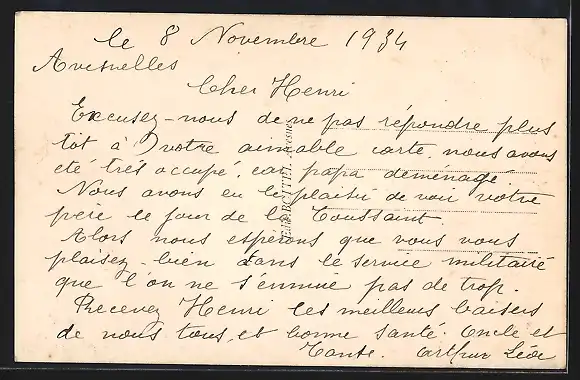 le 8 Novembre 1934
Avesnelles
Cher Henri
Excusez-nous de ne pas répondre plus
tôt à votre aimable carte. nous avons
eté trés occupé, car papa déménagé.
Nous avons eu le plaisir de voir votre
père le jour de la Toussaint.
Alors nous espérons que vous vous
plaisez bien dans le service militaire
que l'on ne s'ennuie pas de trop.
Recevez Henri les meilleurs baisers
de nous tous, et bonne santé. Oncle et
Tante. Arthur